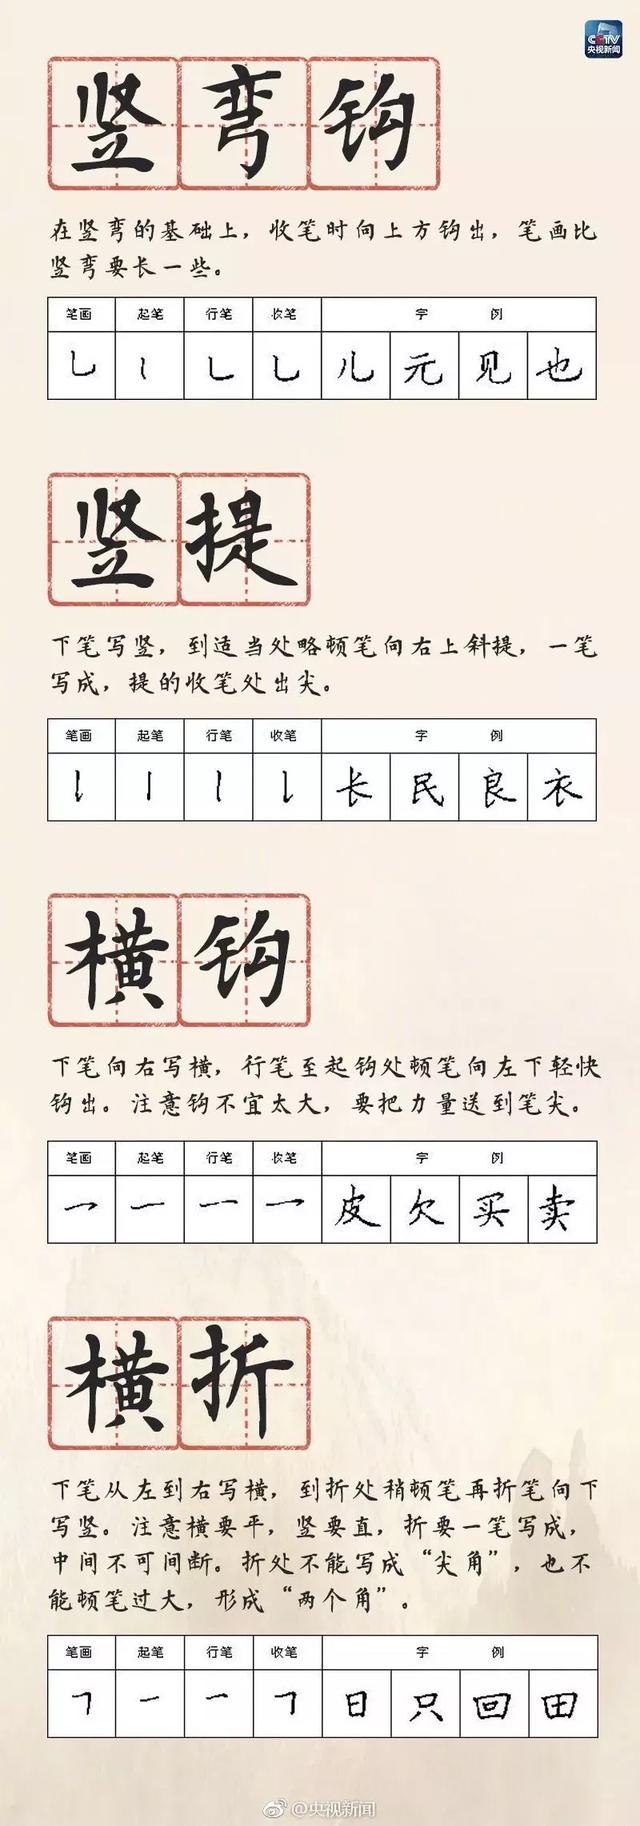 CCTV
央视新闻
竖弯钩
在竖弯的基础上，收笔时向上方钩出，笔画比
竖弯要长一些。
笔画 起笔 行笔 收笔 字 例
乚 丨 乚 乚 儿 元 见 也
竖提
下笔写竖，到适当处略顿笔向右上斜提，一笔
写成，提的收笔处出尖。
笔画 起笔 行笔 收笔 字 例
𠄌 丨 丨 𠄌 长 民 良 衣
横钩
下笔向右写横，行笔至起钩处顿笔向左下轻快
钩出。注意钩不宜太大，要把力量送到笔尖。
笔画 起笔 行笔 收笔 字 例
乛 一 一 乛 皮 欠 买 卖
横折
下笔从左到右写横，到折处稍顿笔再折笔向下
写竖。注意横要平，竖要直，折要一笔写成，
中间不可间断。折处不能写成“尖角”，也不
能顿笔过大，形成“两个角”。
笔画 起笔 行笔 收笔 字 例
𠃍 一 一 𠃍 日 只 回 田
@央视新闻